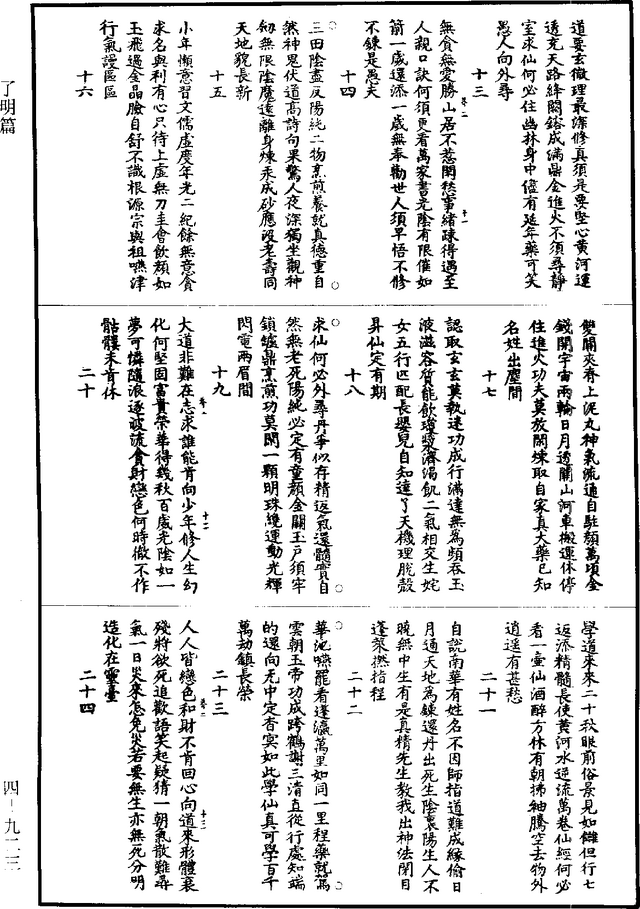 道要玄微理最深修真須是要堅心黃河運
透充天路絳闕鎔成滿鼎金進火不須尋靜
室求仙何必住幽林身中儘有延年藥可笑
愚人向外尋
十三
無貪無愛勝山居不惹閑愁事緒疎得遇至
人親口訣何須更看萬家書光陰有限催如
箭一歲還添一歲無奉勸世人須早悟不修
不鍊是愚夫
十四
三田陰盡反陽純二物烹煎養就真德重自
然神鬼伏道高詩句果驚人夜深獨坐觀神
劒無限陰魔遠離身煉汞成砂應沒老壽同
天地貌長新
十五
小年懶意習文儒虛度年光二紀餘無意貪
求名與利有心只待上虛無刀圭會飲顏如
玉飛過金晶臉自舒不識根源宗與祖嚥津
行氣謾區區
十六
雙關夾脊上泥丸神氣流通自駐顏萬頃金
錢開宇宙兩輪日月透關山河車搬運休停
住進火功夫莫放閑煉取自家真大藥已知
名姓出塵間
十七
認取玄玄莫執迷功成行滿達無為頻吞玉
液滋容質能飲瓊漿濟渴飢二氣相交生姹
女五行匹配長嬰兒自知達了天機理脫殼
昇仙定有期
十八
求仙何必外尋丹爭似存精返氣還髓實自
然無老死陽純必定有童顏金關玉戶須牢
鎖爐鼎烹煎功莫閑一顆明珠繞運動光輝
閃電兩眉間
十九
大道非難在志求誰能肯向少年修人生幻
化何堅固富貴榮華得幾秋百歲光陰如一
夢可憐隨浪逐波流貪財戀色何時徹不作
骷髏未肯休
二十
學道來來二十秋眼前俗景見如讎但行七
返添精髓長使黃河水逆流萬卷仙經何必
看一壺仙酒醉方休有朝拂紬騰空去物外
逍遙有甚愁
二十一
自說南華有姓名不因師指道難成緣偷日
月通天地為鍊還丹出死生陰裏陽生人不
曉無中生有是真精先生教我出神法閉目
蓬萊撚指程
二十二
華池嚥罷看蓬瀛萬里如同一里程藥就駕
雲朝玉帝功成跨鶴謝三清直從行處知端
的還向无中定杳冥如此學仙真可學百千
萬劫鎮長榮
二十三
人人皆戀色和財不肯回心向道來形體衰
殘將欲死追歡語笑起疑猜一朝氣散難尋
氣一日災來怎免災若要無生亦無死分明
造化在靈臺
二十四
了明篇
四-九二三